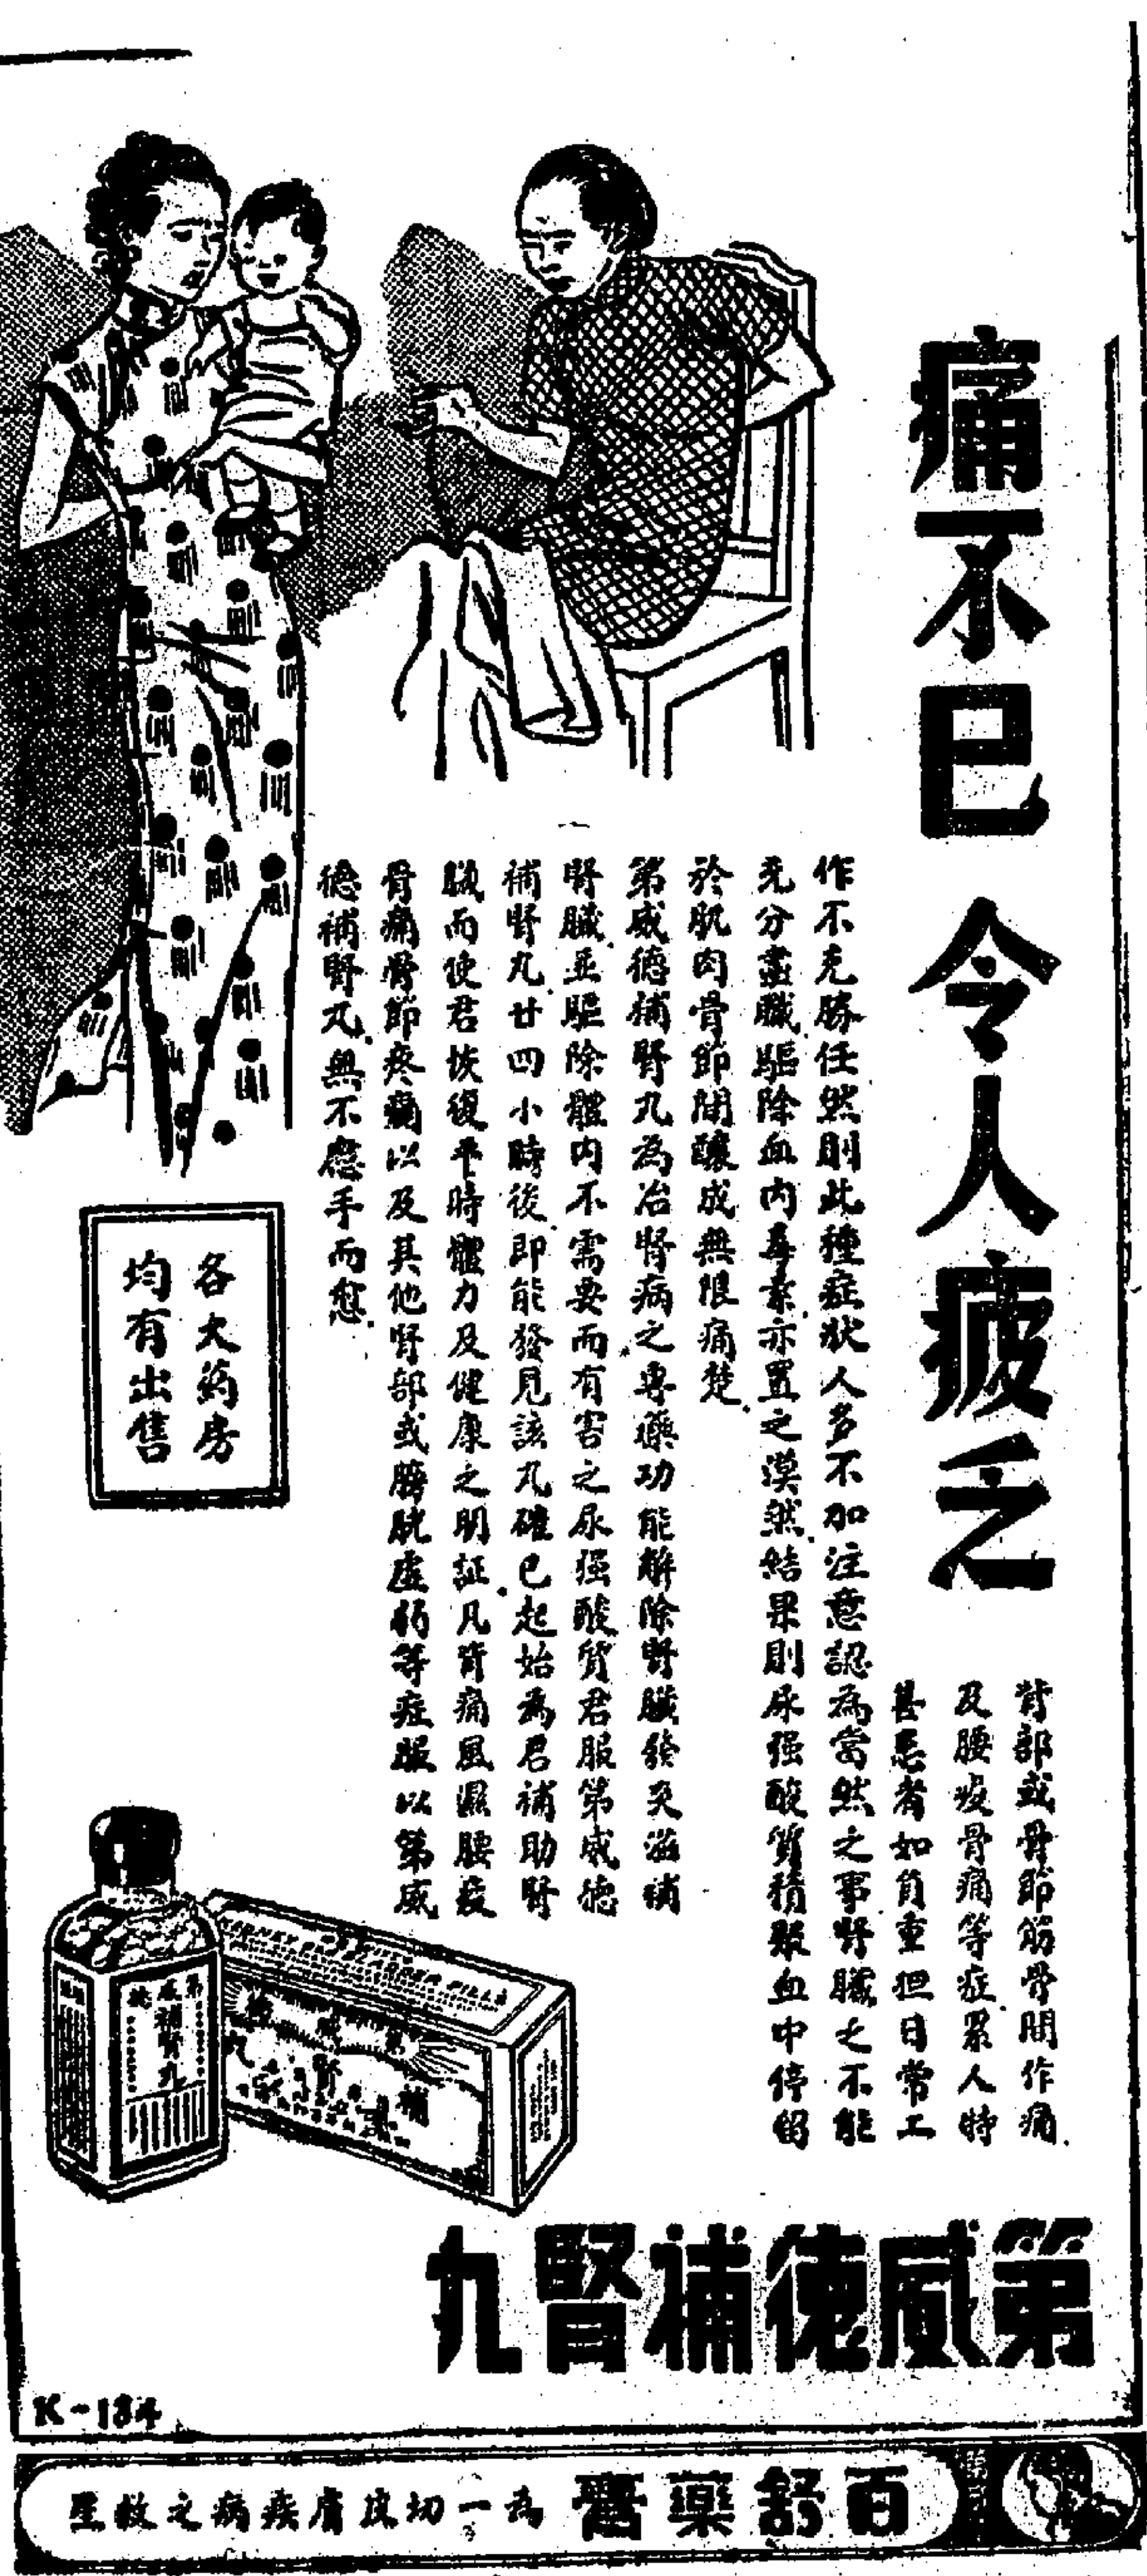 痛不已 令人疲乏
背部或骨節筋骨間作痛
及腰痠骨痛等症累人特
甚患者如負重担日常工
作不克勝任然則此種症狀人多不加注意認為當然之事腎臟之不能
充分盡職驅除血內毒素亦置之漠然結果則尿强酸質積聚血中停留
於肌肉骨節間釀成無限痛楚
第威德補腎丸為治腎病之專藥功能解除腎臟發炎滋補
腎臟並驅除體內不需要而有害之尿强酸質君服第威德
補腎丸廿四小時後即能發見該丸確已起始為君補助腎
臟而使君恢復平時體力及健康之明証凡背痛風濕腰痠
骨痛骨節疼痛以及其他腎部或膀胱虛弱等症服以第威
德補腎丸無不應手而愈
各大葯房
均有出售
第威德
補腎丸
KIDNEY and BLADDER PILLS
第威德
補腎丸
第威德補腎丸
K-134
百舒藥膏
為一切皮膚疾病之救星